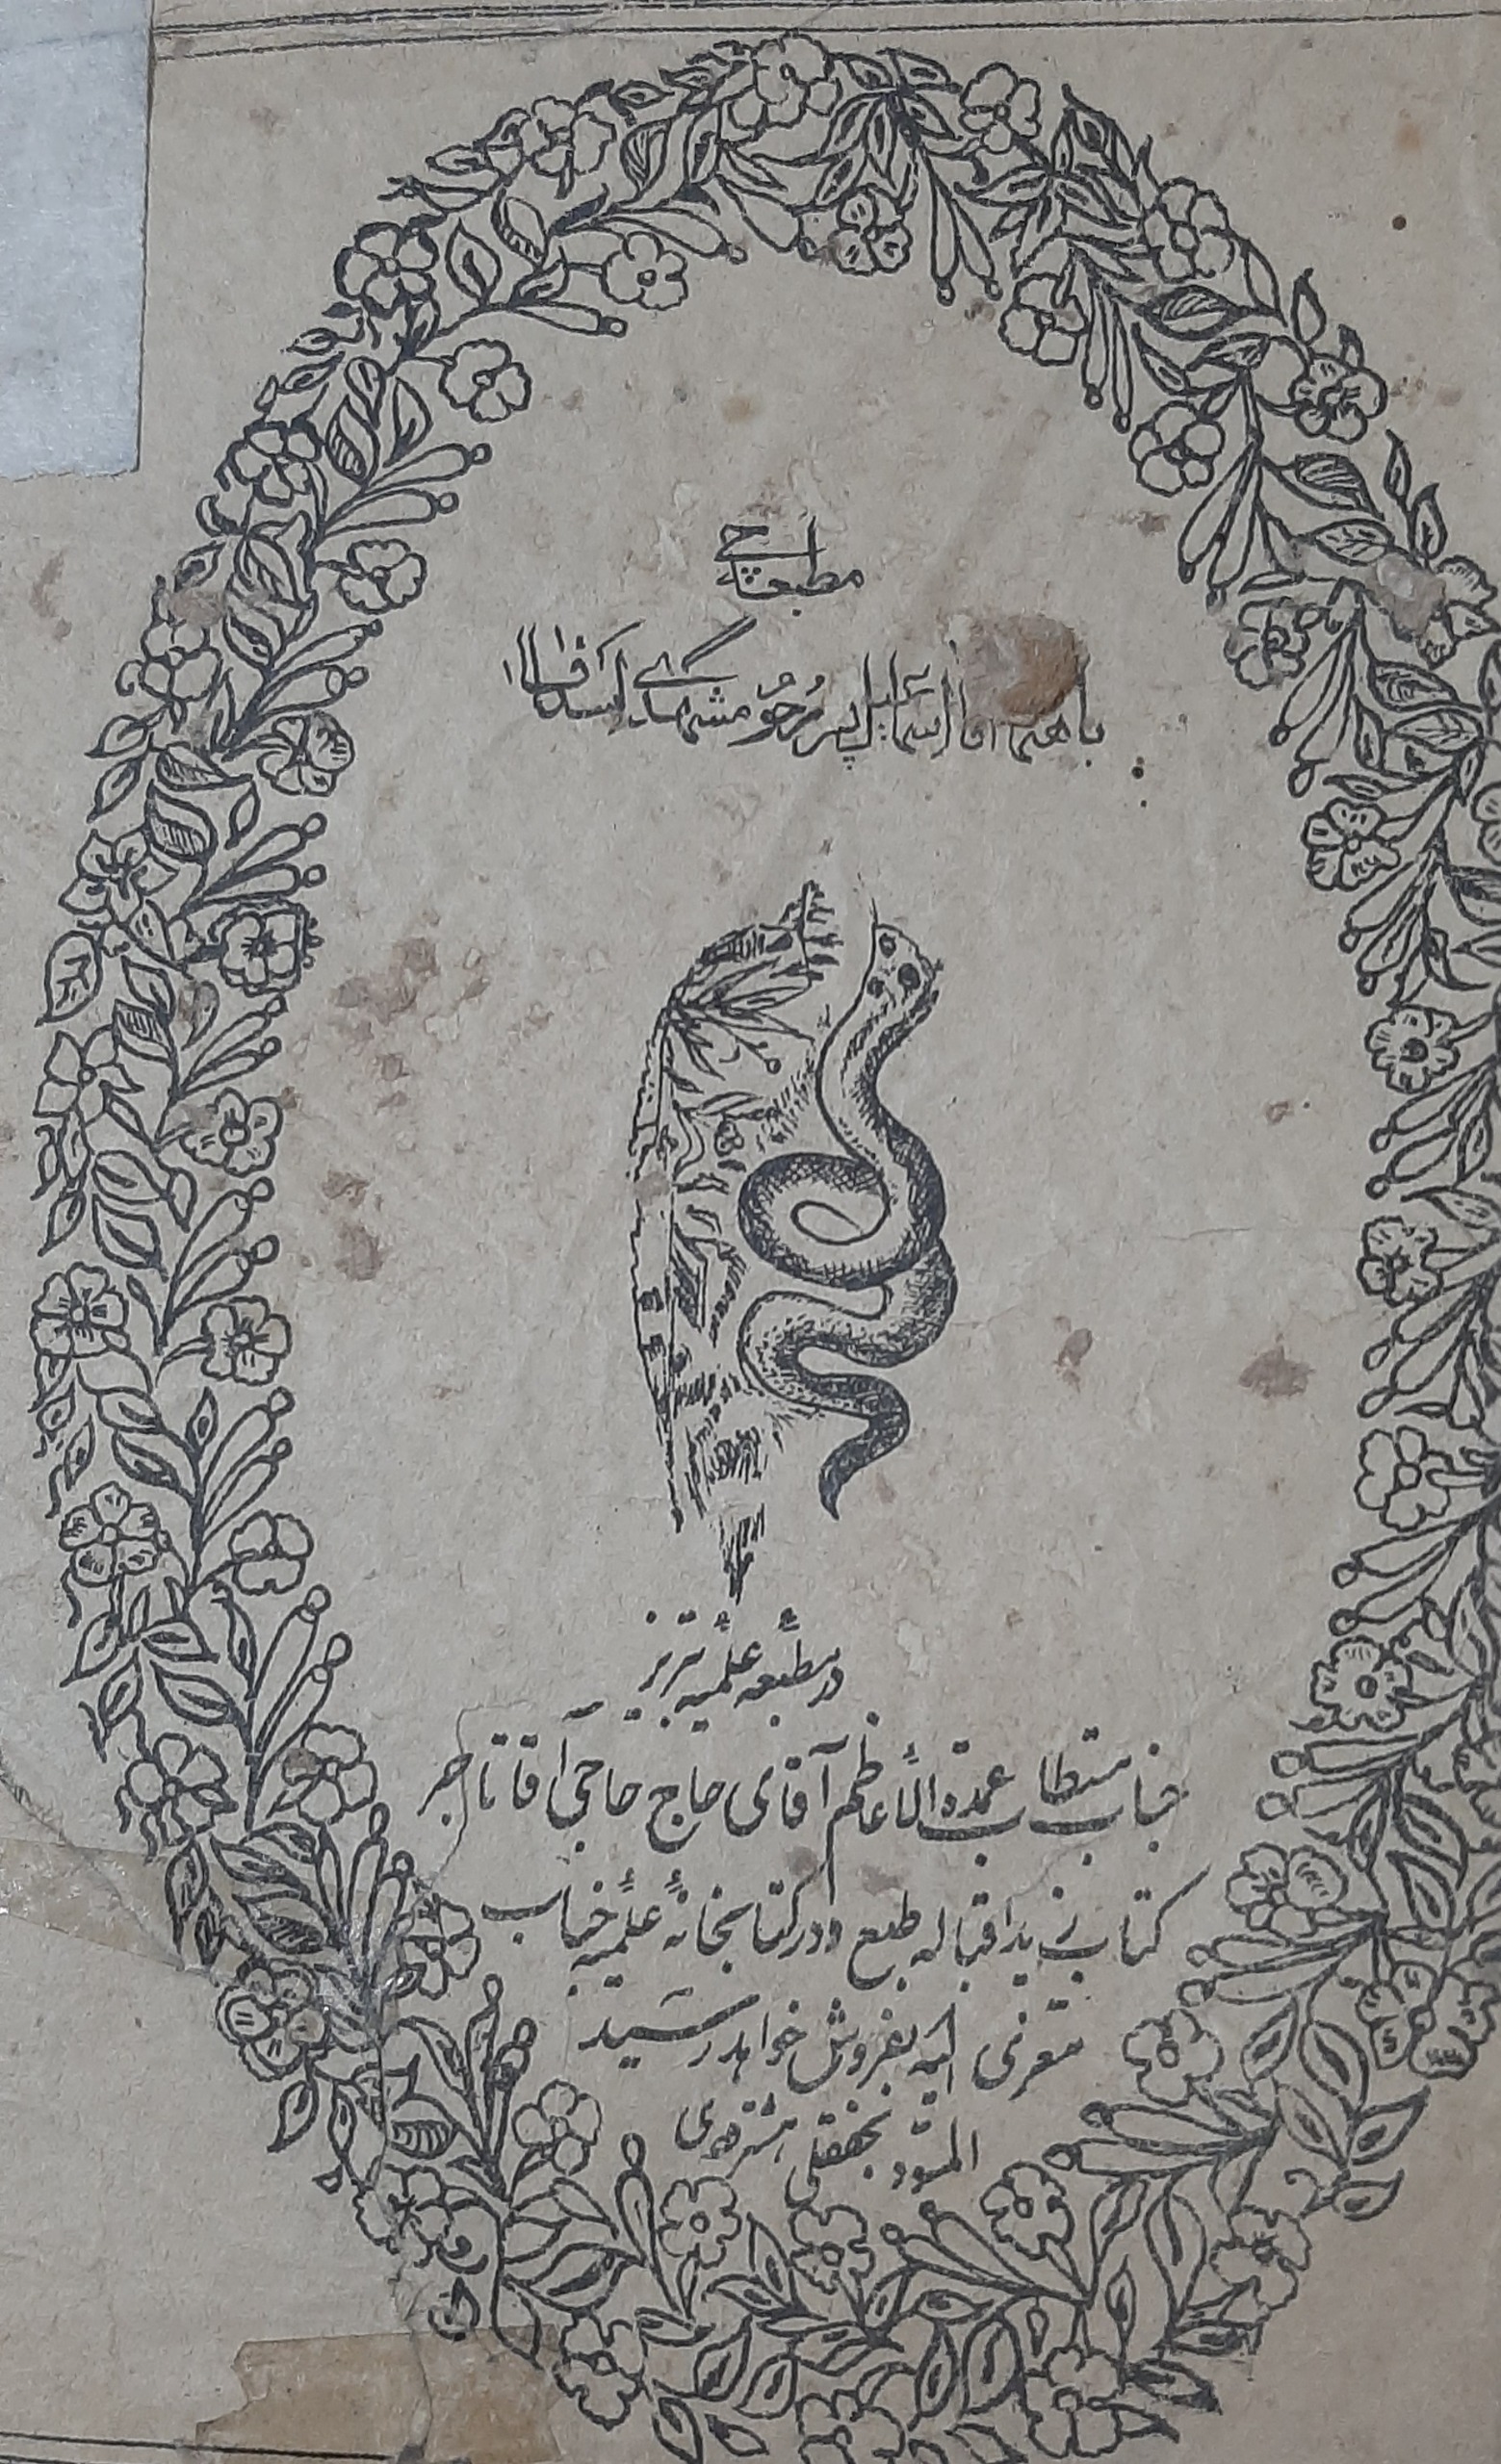 مطبعه‌چی
باهتمام آقا اسماعیل پسر مرحوم مشهدی اسد آقا
در مطبعه علمیه تبریز
جناب مستطاب عمدة الاعاظم آقای حاج حاجی آقا تاجر
کتاب زید اقباله طبع و در کتابخانهٔ علمیه جناب
معزی الیه بفروش خواهد رسید
نجفقلی